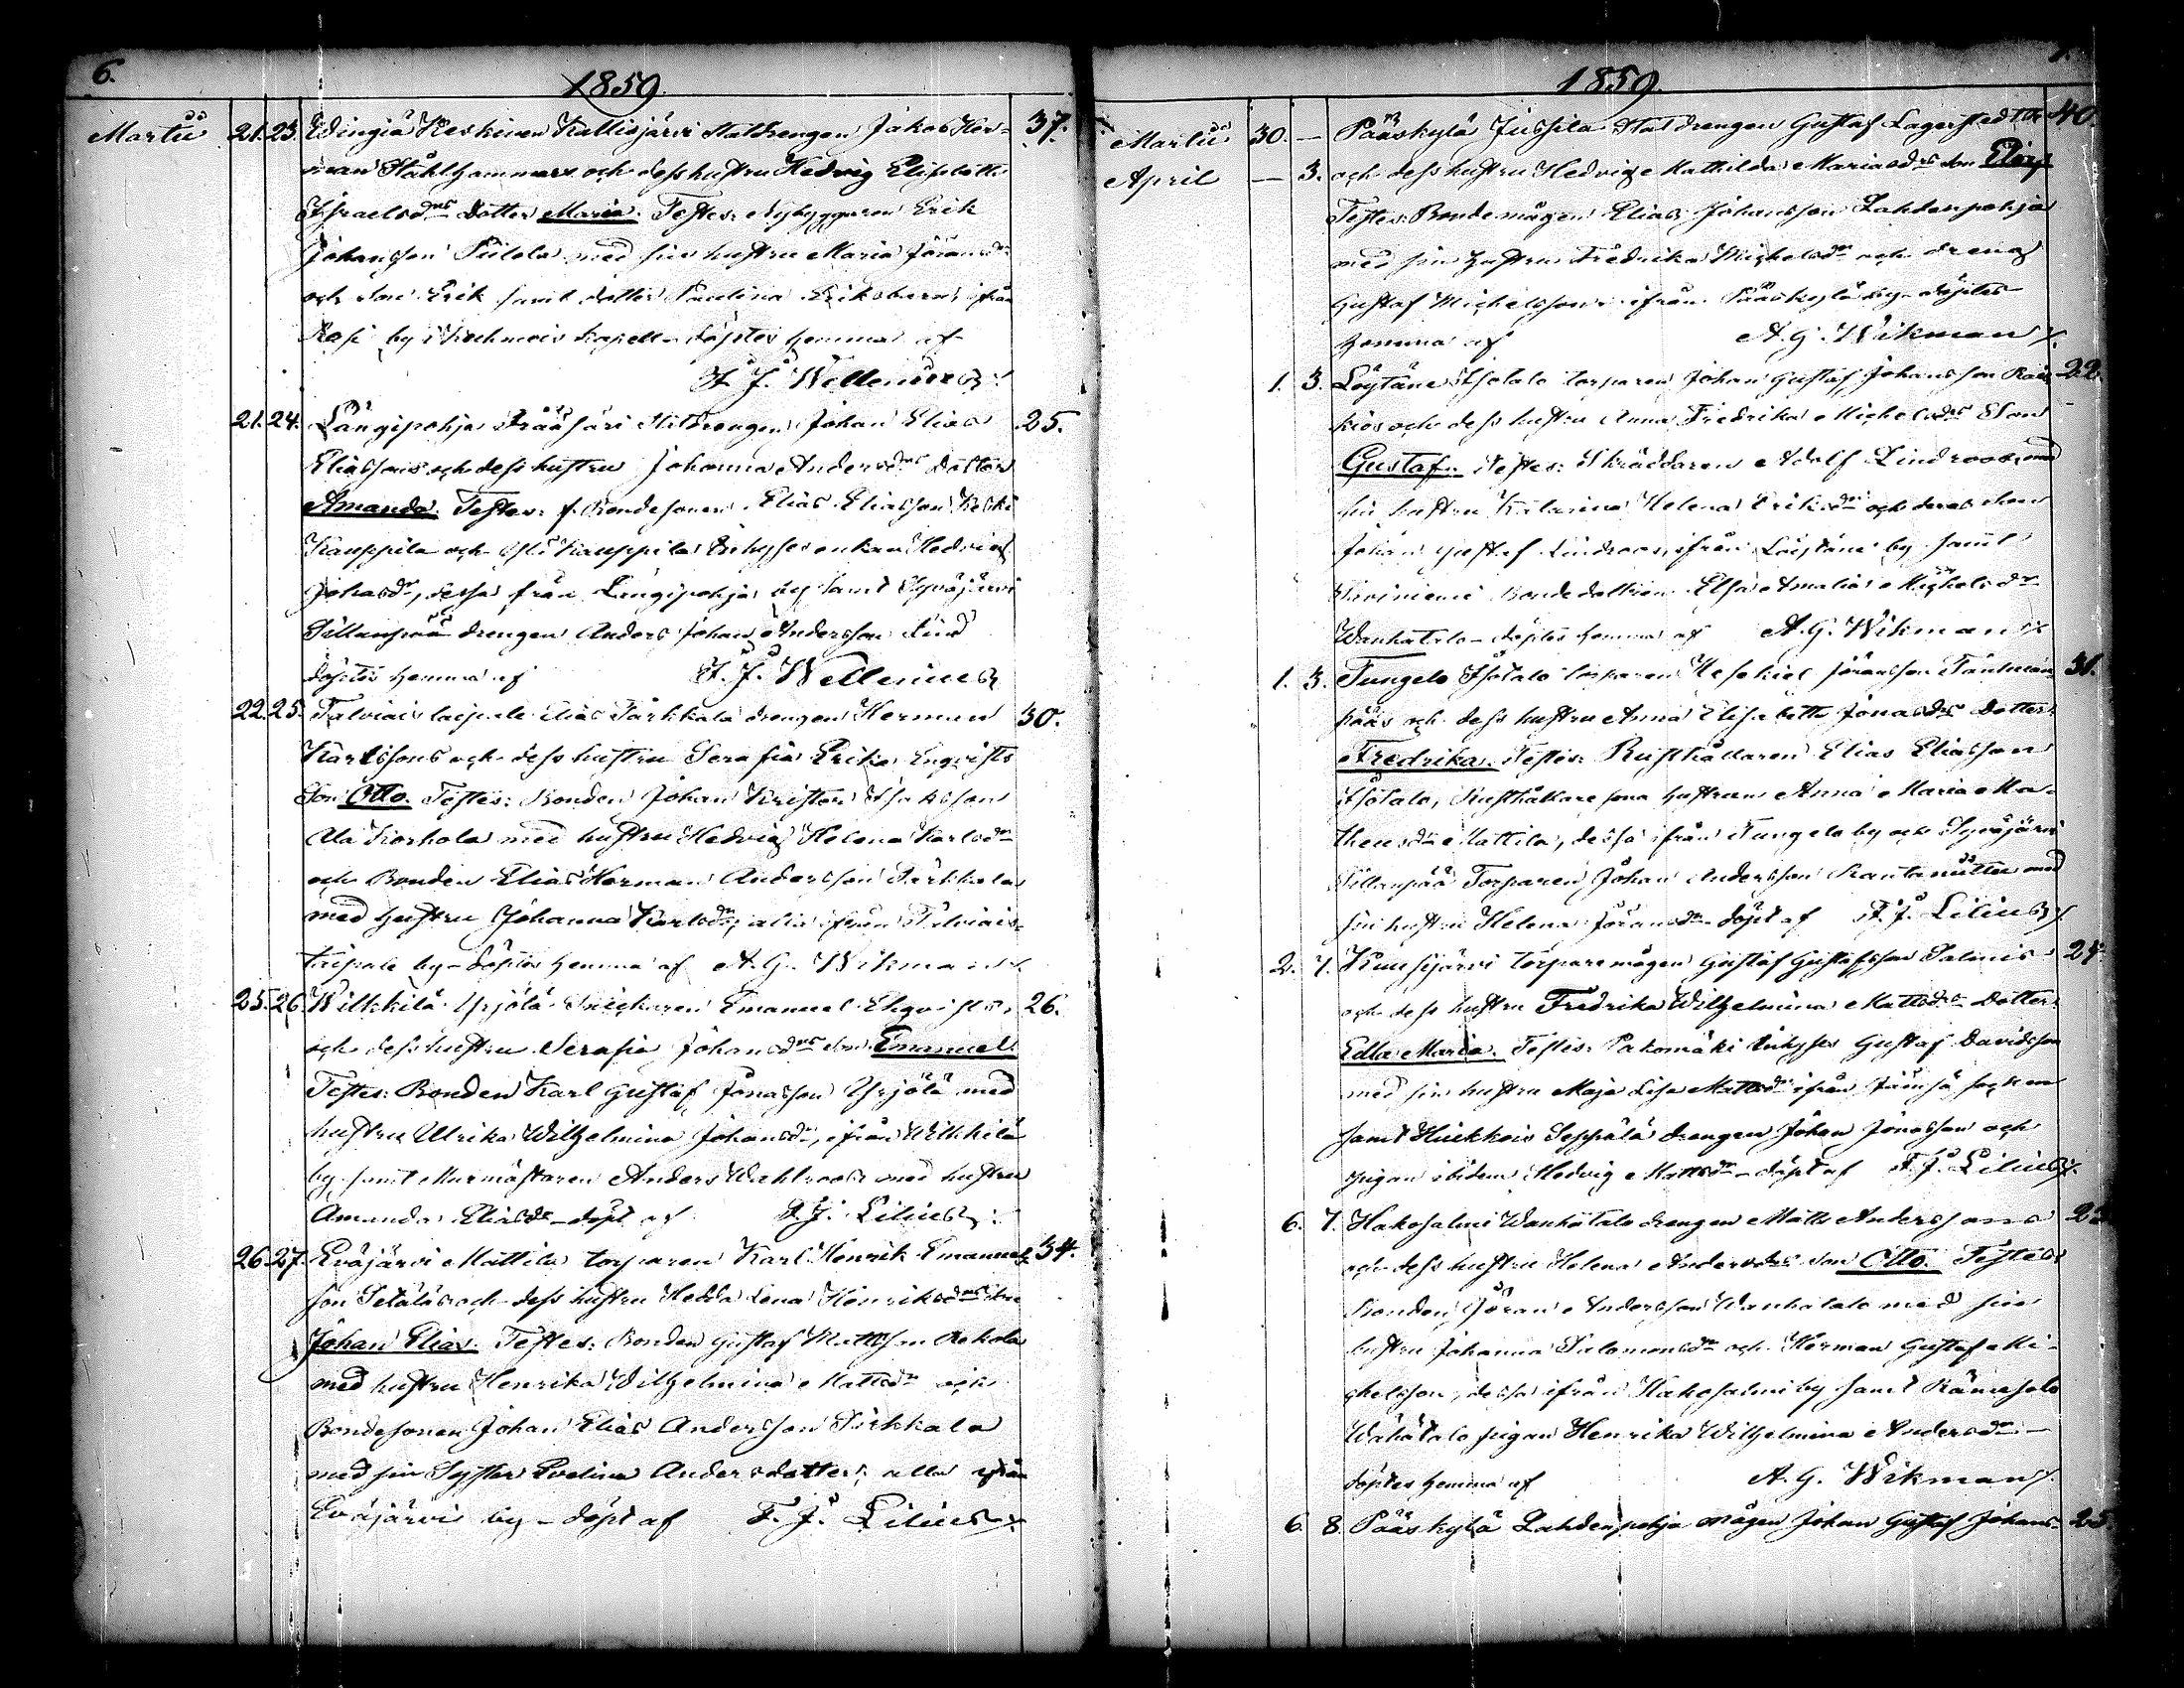 6.
1859.
Martii 21. 23. Edingiä Keskinen Kallisjärvi Statdrengen Jakob Her- 37.
man Stålhammars och dess hustru Hedvig Elisabeth
Israelsdrs dotter Maria. Testes: Nybyggaren Erik
Johansson Piilola med sin hustru Maria Göransdr
och Son Erik samt dotter Paulina Eriksbarn, ifrån
by i Kuhmois kapell döptes hemma af
F. J. Wellenius
21. 24. Längipohja Statdrengen Johan Elias 25.
Eliassons och dess hustru Johanna Andersdrs Dotter
Amanda. Testes: f. Bondesonen Elias Eliasson Keski
Kauppila och Kauppila Inhyses enkan Hedvig
Johansdr, dessa från Längipohja by samt Syväjärvi
Sillanpää drengen Anders Johan Andersson Lind
döptes hemma af F. J. Wellenius
22. 25. Talviais laipale Elias Pärkkälä drengen Herman 30.
Karlssons och dess hustru Serafia Erika Enqvists
Son Otto. Testes: Bonden Johan Krister Isaksson
Ala Korhola med hustru Hedvig Helena Karlsdr
och Bonden Elias Herman Andersson Pärkkälä
med hustru Johanna Karlsdr, alla ifrån Talviais-
taipale by - döptes hemma af A. G. Wikman
25. 26. Wilkkilä Yrjölä Snickaren Emanuel Ekqvists, 26.
och dess hustru Serafia Johansdrs son Emanuel.
Testes: Bonden Karl Gustaf Jonasson Yrjölä med
hustru Ulrika Wilhelmina Johansdr, ifrån Wilkkilä
by samt Murmästaren Anders Wahlroos med hustru
Amanda Eliasdr - döpt af F. J. Lilius
26. 27. Eväjärvi Mattila torparen Karl Henrik Emanuels- 34.
son Setäläs och dess hustru Hedda Lena Henriksdrs Son
Johan Elias. Testes: Bonden Gustaf Mattsson Rekola
med hustru Henrika Wilhelmina Mattsdr och
Bondesonen Johan Elias Andersson Pirkkala
med sin Syster Evelina Andersdotter, alla ifrån
Eväjärvi by - döpt af F. J. Lilius
1859.
Martii 30. — Pääskylä Jussila Statdrengen Gustaf Lagerstedts 40.
April — 3. och dess hustru Hedvig Mathilda Mariasdrs son Elias
Testes: Bondemågen Elias Johansson Lahdenpohja
med sin hustru Fredrika Michelsdr och dreng
Gustaf Michelsson ifrån Pääskylä by - döptes
hemma af A. G. Wikman
1. 3. Löytäne Isotalo torparen Johan Gustaf Johansson 22.
och dess hustru Anna Fredrika Michelsdrs Son
Gustaf. Testes: Skräddaren Adolf Lindroos, med
sin hustru Katarina Helena Eriksdr och deras son
Johan Gustaf Lindroos, ifrån Löytäne by samt
Niviniemi Bondedottren Elsa Amalia Michelsdr
Wanhatalo - döptes hemma af A. G. Wikman
1. 3. Tungelo Isotalo torparen Hesekiel Göransson 31.
och dess hustru Anna Elisabetta Jonasdrs Dotter
Fredrika. Testes: Rusthållaren Elias Eliasson
Isotalo, Rusthållare sons hustrun Anna Maria Ma-
theusdr Mattila, dessa ifrån Tungelo by och Syväjärvi
Sillanpää Torparen Johan Andersson Rautaniittu med
sin hustru Helena Göransdr - döpt af F. J. Lilius
2. 7. Kuusijärvi torparemågen Gustaf Gustafsson Salmis 24.
och dess hustru Fredrika Wilhelmina Mattsdrs Dotter
Edla Maria. Testes: Pakomäki inhyses Gustaf Davidsson
med sin hustru Maja Lisa Mattsdr ifrån Jämsä socken
samt Hiukkois Seppälä drengen Johan Jonasson och
pigan ibidem Hedvig Mattsdr - döpt af F. J. Lilius
6. 7. Hakosalmi Wanhatalo drengen Matts Anderssons
och dess hustru Helena Andersdrs son Otto. Testes
Bonden Göran Andersson Wanhatalo med sin
hustru Johanna Salomonsdr och Herman Gustaf Mi-
chelsson, dessa ifrån Hakosalmi by samt
Wähätalo pigan Henrika Wilhelmina Andersdr -
döptes hemma af A. G. Wikman
6. 8. Pääskylä Lahdenpohja mågen Johan Gustaf Johans- 25.